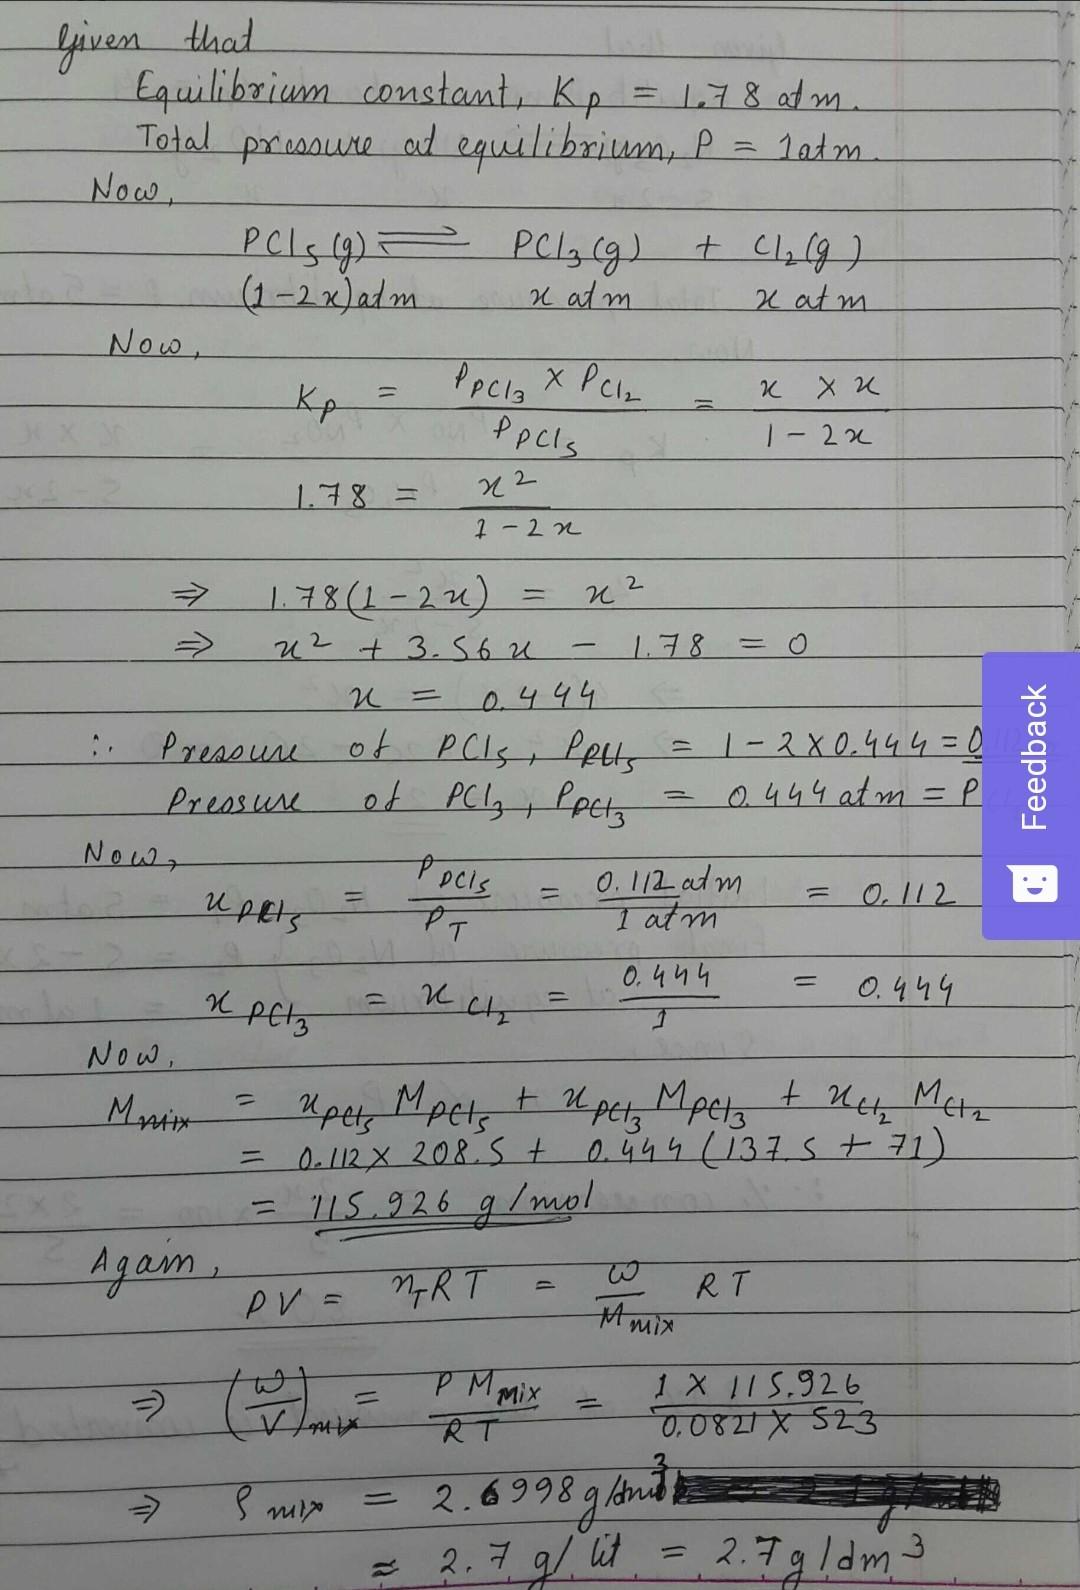 Given that
Equilibrium constant, Kp = 1.78 atm.
Total pressure at equilibrium, P = 1atm.
Now,
PCl5 (g) ⇌ PCl3 (g) + Cl2 (g)
(1-2x)atm x atm x atm
Now,
Kp = PPCl3 × PCl2 / PPCl5 = x × x / 1-2x
1.78 = x² / 1-2x
⇒ 1.78(1-2x) = x²
⇒ x² + 3.56x - 1.78 = 0
x = 0.444
∴ Pressure of PCl5, PPCl5 = 1-2×0.444=0
Pressure of PCl3, PPCl3 = 0.444 atm = P
Feedback
Now,
xPCl5 = PPCl5 / PT = 0.112 atm / 1 atm = 0.112
xPCl3 = xCl2 = 0.444 / 1 = 0.444
Now,
Mmix = xPCl5 MPCl5 + xPCl3 MPCl3 + xCl2 MCl2
= 0.112× 208.5 + 0.444 (137.5 + 71)
= 115.926 g/mol
Again,
PV = nTRT = w / Mmix RT
⇒ (w/V)mix = P Mmix / RT = 1 × 115.926 / 0.0821 × 523
⇒ ρmix = 2.6998 g/dm³
≈ 2.7 g/lit = 2.7g/dm³